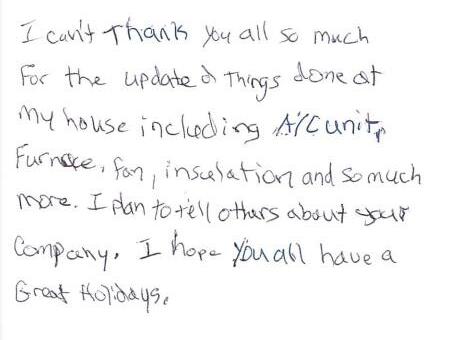 I can't Thank You all so much
For the updated Things done at
My house including A/C unit,
Furnace, fan, insulation and so much
more. I plan to tell others about your
Company. I hope You all have a
Great Holidays.